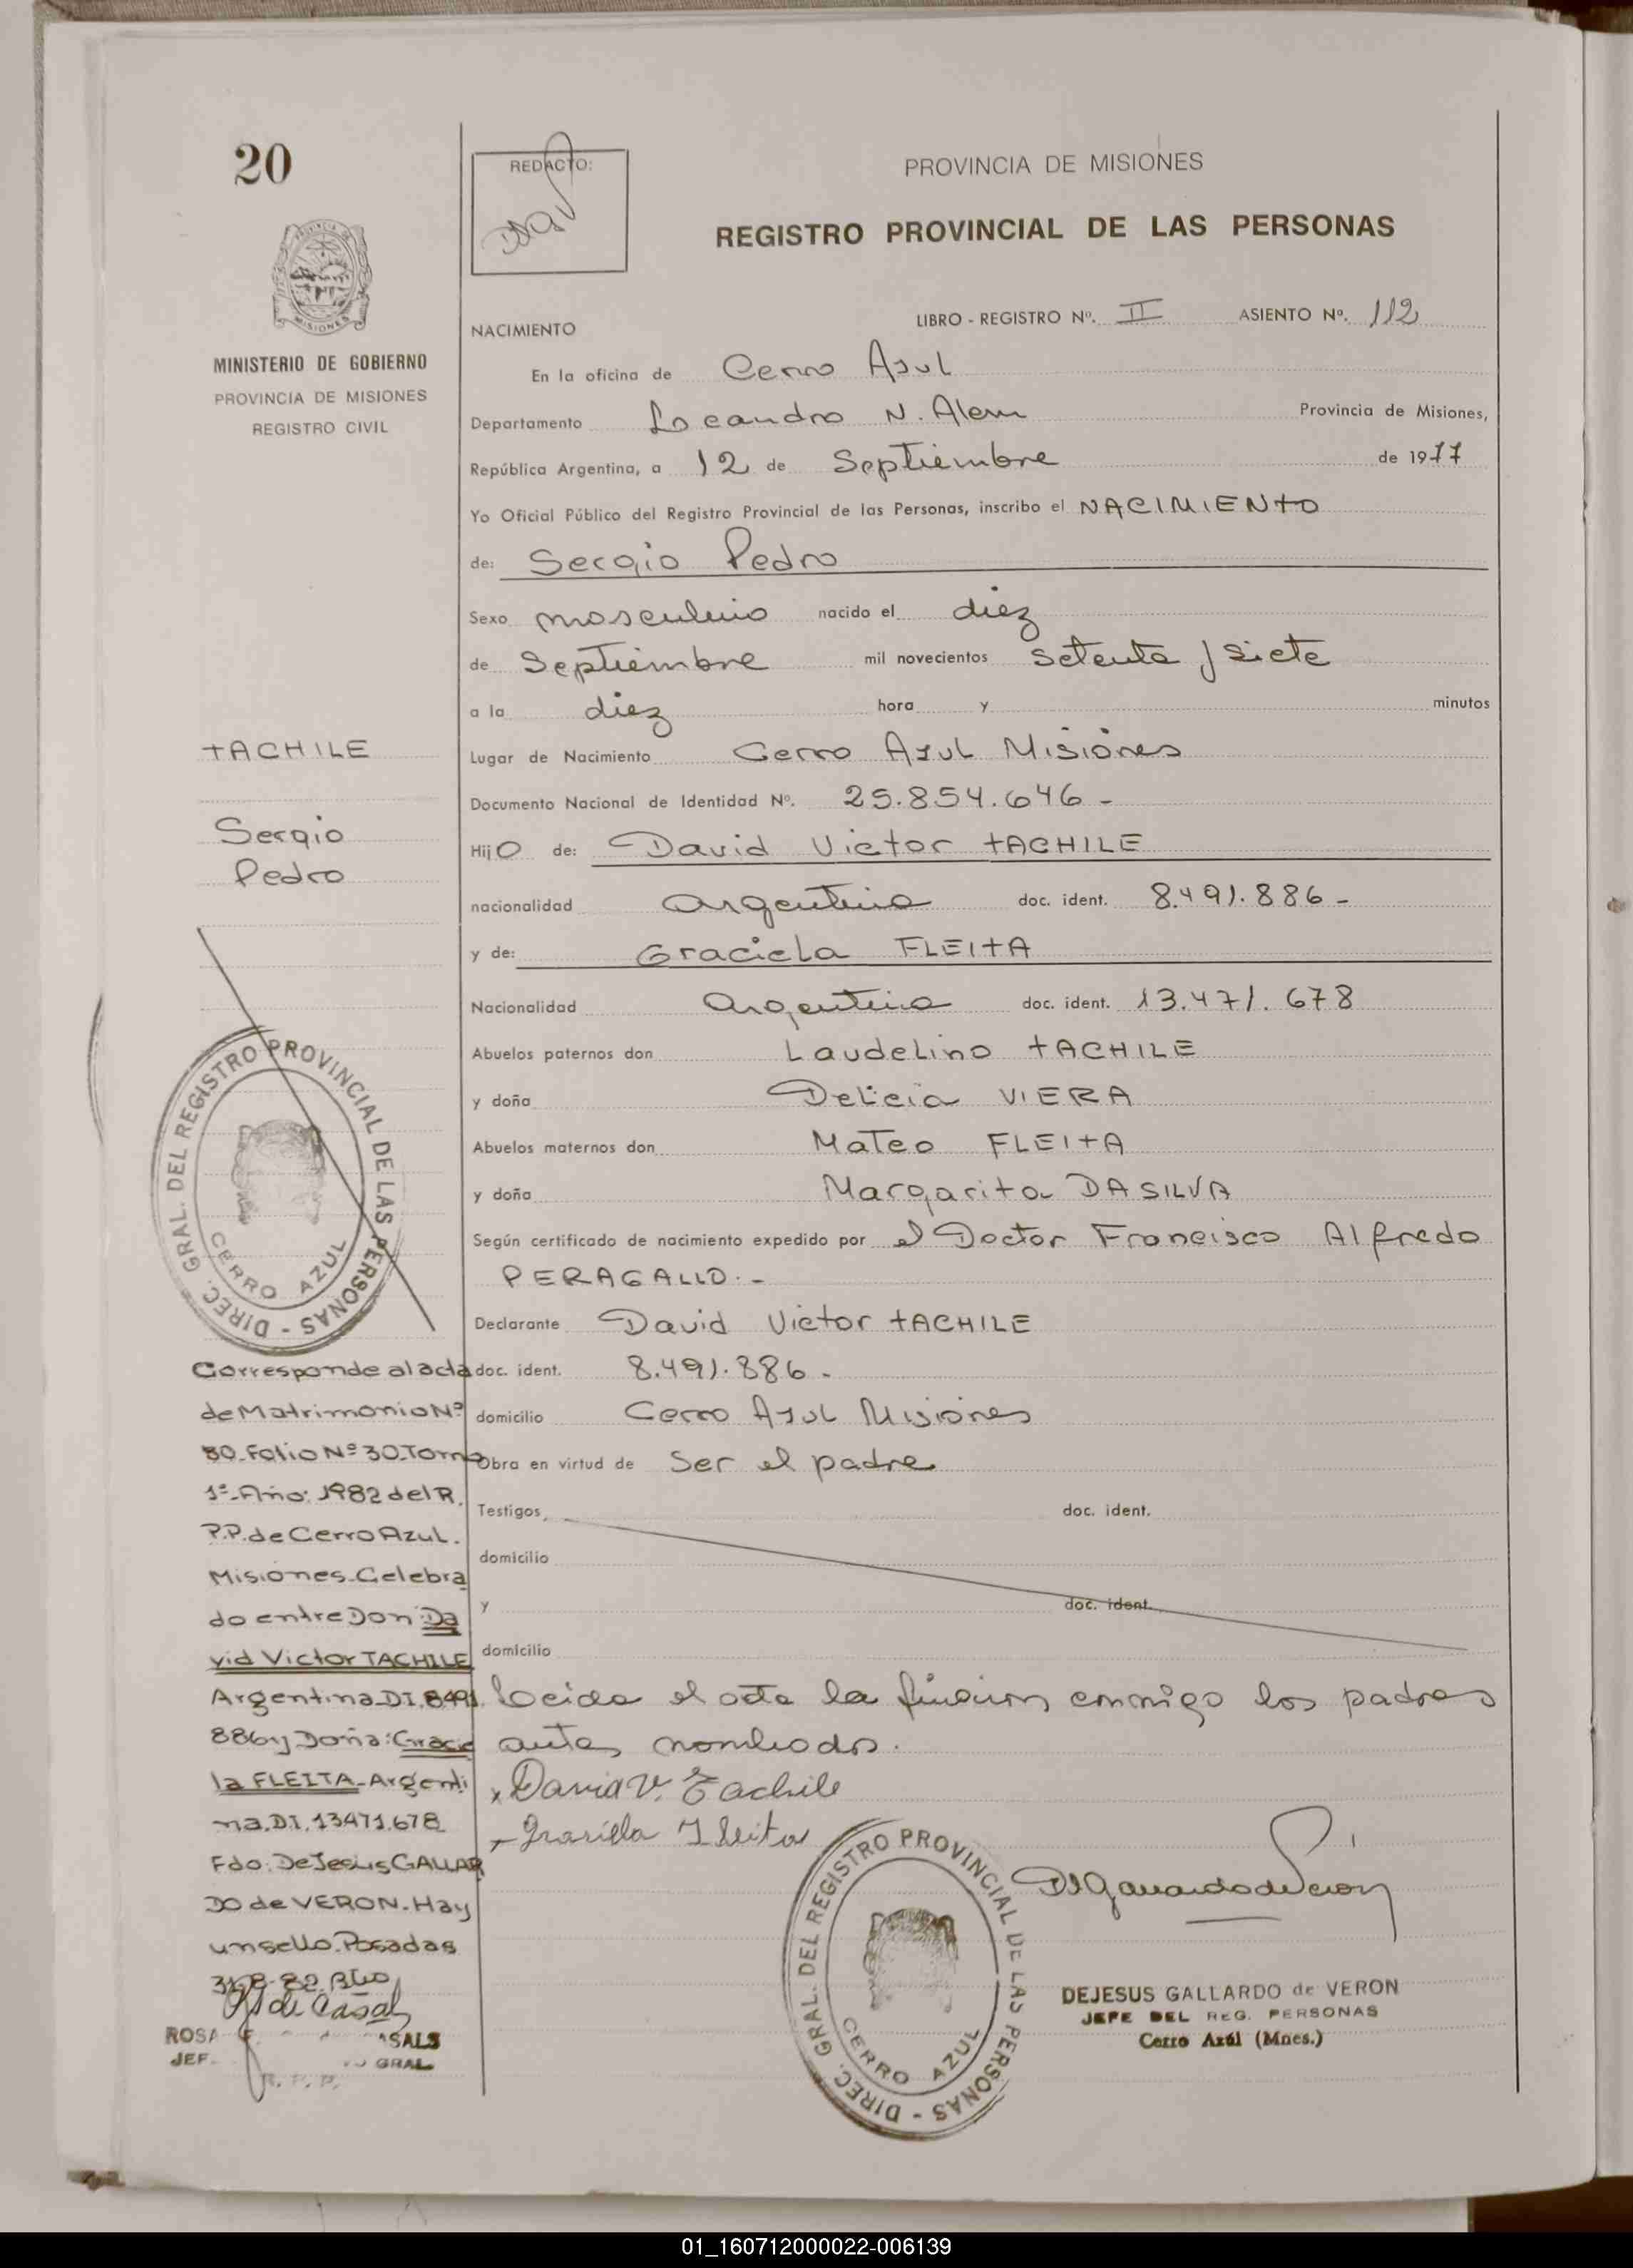 20
REDACTO:
PROVINCIA DE MISIONES
REGISTRO PROVINCIAL DE LAS PERSONAS
MISIONES
MINISTERIO DE GOBIERNO
PROVINCIA DE MISIONES
REGISTRO CIVIL
NACIMIENTO
LIBRO - REGISTRO Nº. II ASIENTO Nº. 112
En la oficina de Cerro Asul
Departamento Leandro N. Alem Provincia de Misiones,
República Argentina, a 12 de Septiembre de 1977
Yo Oficial Público del Registro Provincial de las Personas, inscribo el NACIMIENTO
de: Sergio Pedro
Sexo masculino nacido el diez
de Septiembre mil novecientos setenta y siete
a la diez hora y minutos
Lugar de Nacimiento Cerro Asul Misiones
Documento Nacional de Identidad Nº. 25.854.646 -
Hijo de: David Victor TACHILE
nacionalidad argentina doc. ident. 8.491.886 -
y de: Graciela FLEITA
Nacionalidad argentina doc. ident. 13.471.678
Abuelos paternos don Laudelino TACHILE
y doña Delicia VIERA
Abuelos maternos don Mateo FLEITA
y doña Margarita DASILVA
Según certificado de nacimiento expedido por el Doctor Francisco Alfredo
PERAGALLO. -
Declarante David Victor TACHILE
doc. ident. 8.491.886 -
domicilio Cerro Asul Misiones
Obra en virtud de Ser el padre
Testigos doc. ident.
domicilio
y doc. ident.
domicilio
Leida el acta la firman conmigo los padres
antes nombrados.
x David V. Tachile
x Graciela Fleita
DIREC. GRAL. DEL REGISTRO PROVINCIAL DE LAS PERSONAS -
CERRO AZUL
DEJESUS GALLARDO de VERON
JEFE DEL REG. PERSONAS
Cerro Azúl (Mnes.)
TACHILE
Sergio
Pedro
DIREC. GRAL. DEL REGISTRO PROVINCIAL DE LAS PERSONAS -
CERRO AZUL
Corresponde al acta
de Matrimonio Nº
30-Folio Nº 30-Tomo
1º-Año: 1982 del R.
P.P. de Cerro Azul.
Misiones-Celebra
do entre Don: Da
vid Victor TACHILE
Argentina-DI.8491.
886 y Doña: Gracie
la FLEITA-Argenti
na.DI.13471.678
Fdo: DeJesus GALLAR
DO de VERON-Hay
un sello. Posadas
R. P. P.
01_160712000022-006139